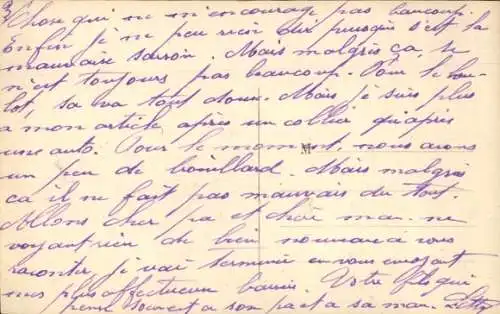 Chose qui ne m'encourage pas baucoup.
Enfin je ne peu rien dir puisque s'est la
mauvaise saison. Mais malgrès ça, se
n'est toujours pas beaucoup. Pour le bou-
lot, sa va tout doux. Mais je suis plus
a mon article après un collier qu'après
une auto. Pour le moment, nous avons
un peu de brouillard. Mais malgrès
ca il ne fait pas mauvais du tout.
Allons cher pa et chère man. ne
voyant rien de bien nouveau a vous
raconter, je vai terminée en vous envoyant
mes plus affectueux baisers. Votre fils qui
pense souvent a son pa et a sa man.